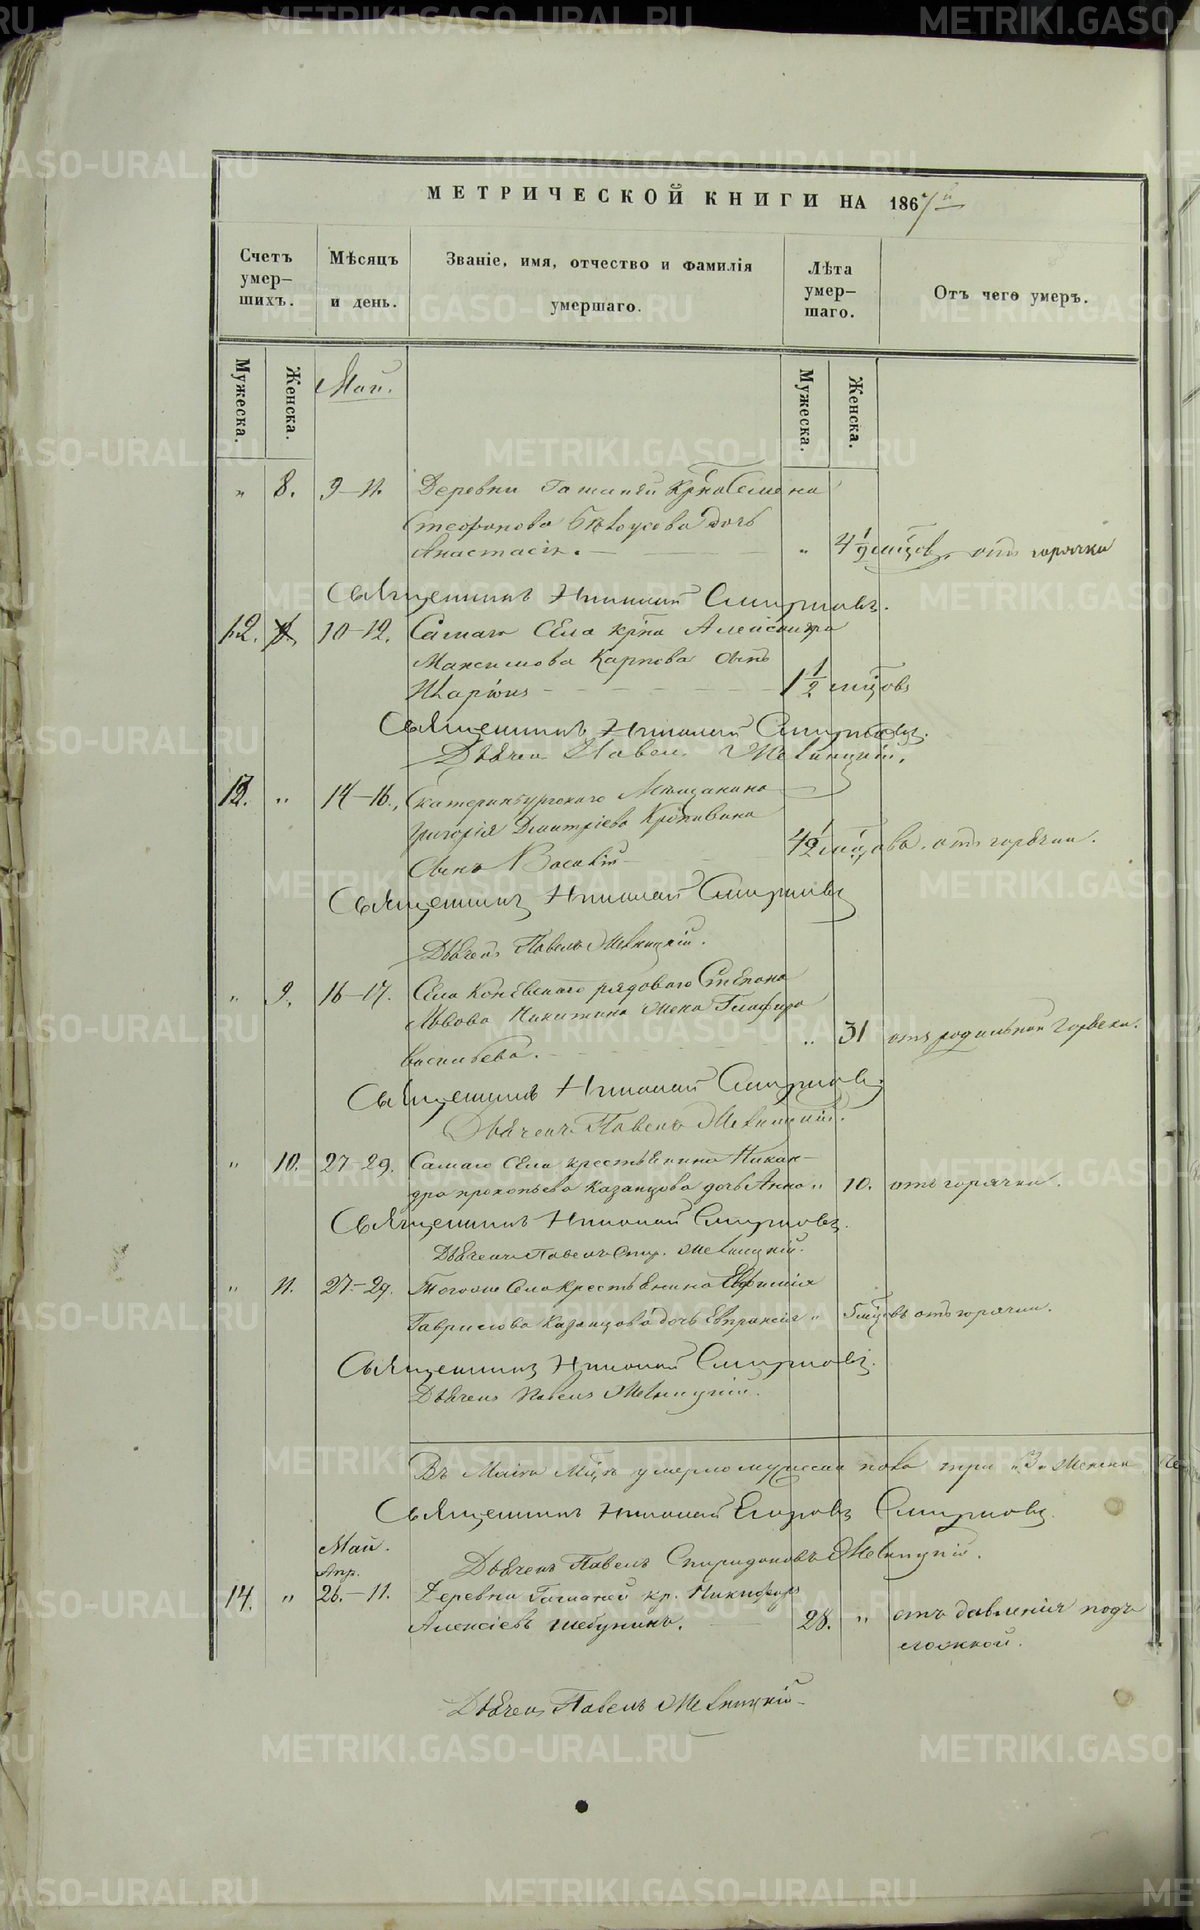 МЕТРИЧЕСКОЙ КНИГИ НА 1867
Счетъ умер-шихъ.
Мѣсяцъ и день.
Званіе, имя, отчество и фамилія умершаго.
Лѣта умер-шаго.
Отъ чего умеръ.
Мужеска.
Женска.
Май.
Мужеска.
Женска.
" 8. 9-11. Деревни Крна Семена
Стефанова Бѣлоусова дочь
Анастасія. " 4 1/2 мѣцовъ отъ горячки
Священникъ Николай Смирновъ.
12. 10-12. Самаго Села крна Александра
Максимова Карпова сынъ
Иларіонъ 1 1/2 мѣцовъ
Священникъ Николай Смирновъ.
Дьячекъ Павелъ
13. " 14-16. Екатеринбургскаго Мѣщанина
Григорія Дмитріева Кропивина
Сынъ Василій 4 1/2 мѣцовъ. отъ горячки.
Священникъ Николай Смирновъ
Дьячекъ Павелъ
" 9. 16-17. Села Коневскаго рядоваго Степана
Львова Никитина жена Глафира
Васильева. " 31 отъ родильной горячки.
Священникъ Николай Смирновъ
Дьячекъ Павелъ
" 10. 27-29. Самаго Села крестьянина Никан-
дра Прокопьева Казанцова дочь Анна " 10. отъ горячки.
Священникъ Николай Смирновъ.
Дьячекъ Павелъ Спир.
" 11. 27-29. Тогоже Села Крестьянина Евфимія
Гаврилова Казанцова дочь Евпраксія " 5 мѣцовъ отъ горячки.
Священникъ Николай Смирновъ.
Дьячекъ Павелъ
Въ Маіи Мцѣ умерло мужеска пола три "3" женска
Священникъ Николай Егоровъ Смирновъ.
Май.
Дьячекъ Павелъ Спиридоновъ
Апр.
14. " 26.-11. Деревни кр. Никифоръ
Алексіевъ Шебунинъ. 28. " отъ давленія подъ
Дьячекъ Павелъ
METRIKI.GASO-URAL.RU